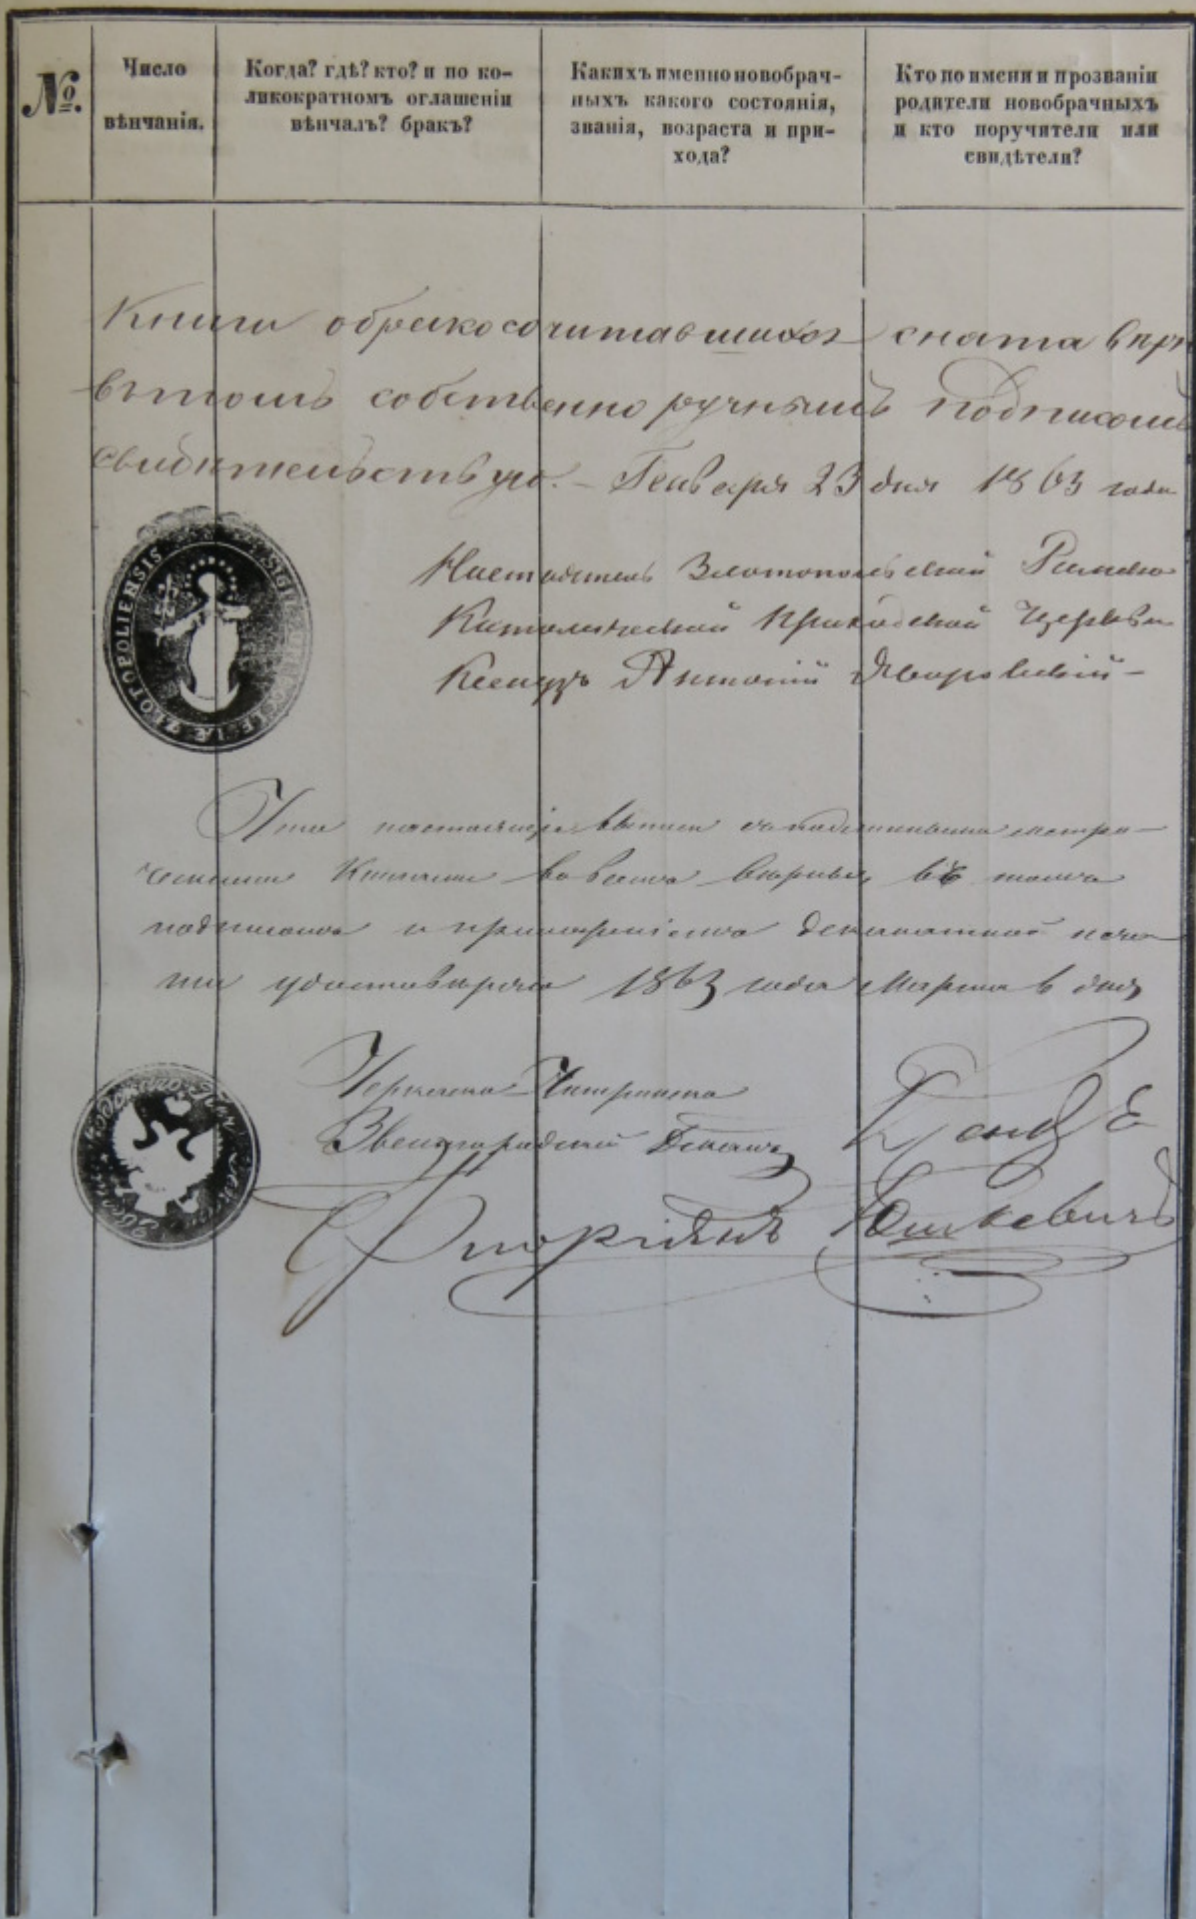 №.
Число
вѣнчанія.
Когда? гдѣ? кто? и по ко-
ликократномъ оглашеніи
вѣнчалъ? бракъ?
Какихъ именно новобрач-
ныхъ какого состоянія,
званія, возраста и при-
хода?
Кто по имени и прозванію
родители новобрачныхъ
и кто поручители или
свидѣтели?
Книги обракосочитавшихся снята вѣр
вътомъ собственно ручнымъ подписомъ
свидѣтельствую. – Генваря 23 дня 1863 года
SIGILL ECCLESIÆ ZŁOTOPOLIENSIS
Настоятель Злотопольской Римско
Католической Приходской Церкви
Ксендзъ Антоній Яворовскій –
Что настоящая выпись съ подлинными метри-
ческими Книгами во всемъ вѣрна, въ томъ
подписомъ и приложеніемъ деканатной печа-
ти удостовѣряю 1863 года Марта 6 дня
Звенигородскій Деканъ Ксендзъ
Флоріянъ Юшкевичъ